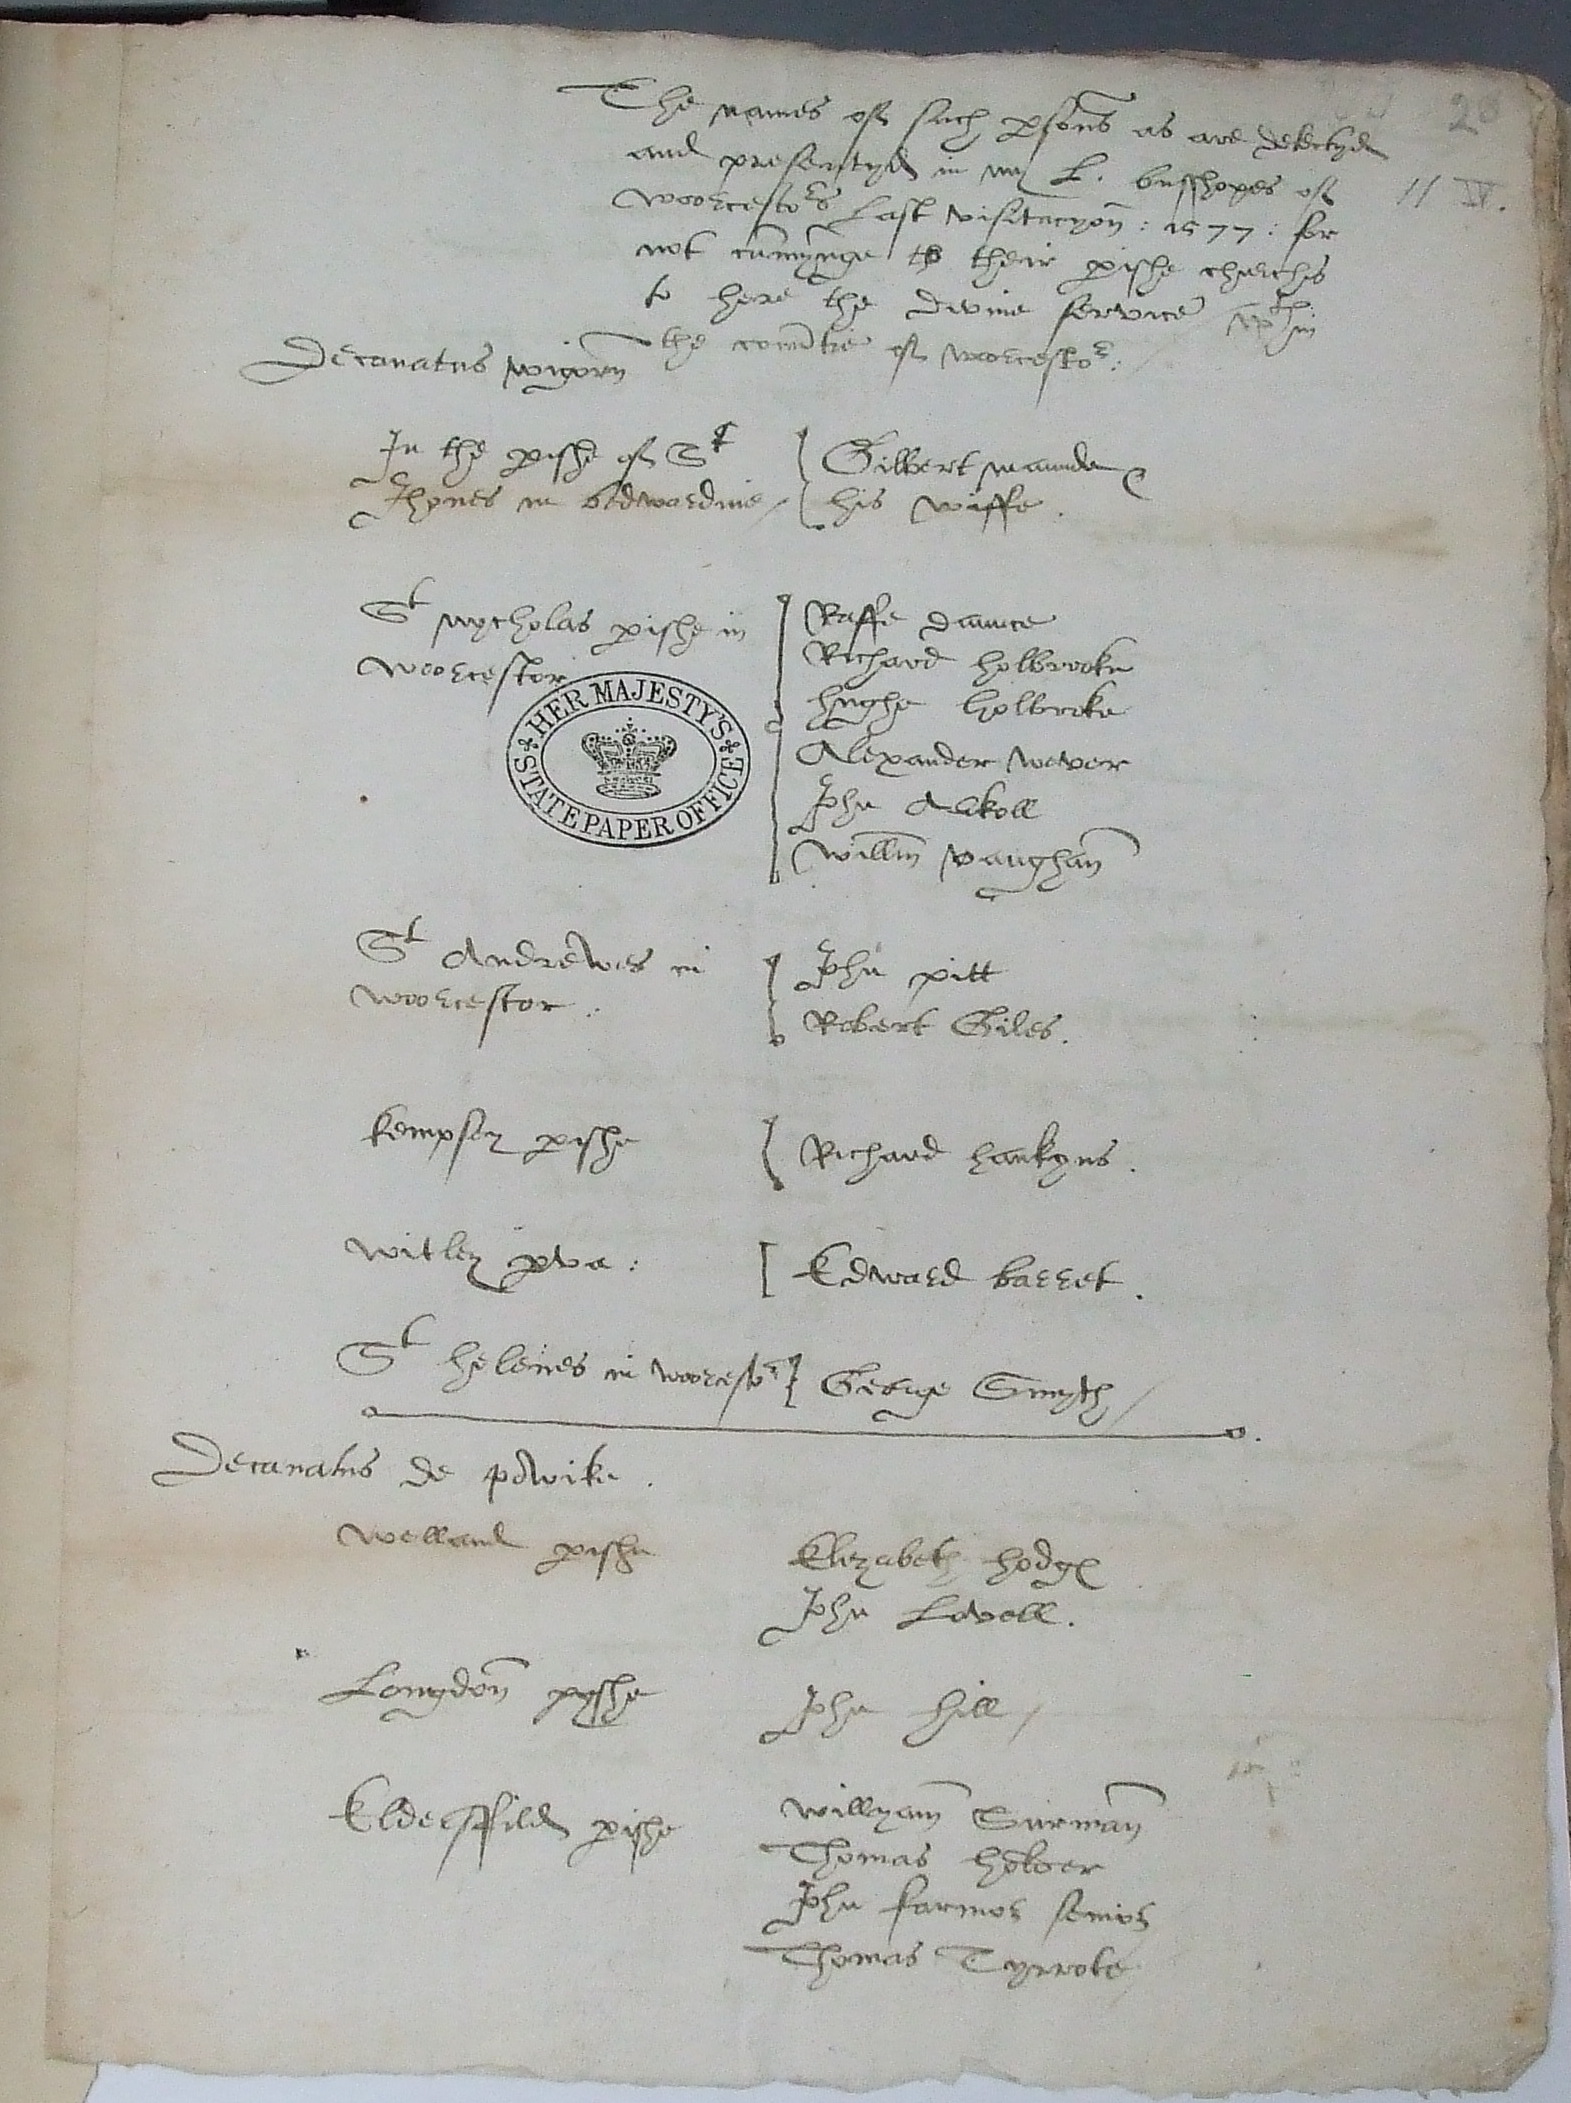 The names of such psons as are detectyd
28
and presentyd in my L. busshopes of
11 IV.
Woorcestors Last visitacyon : 1577 : for
not cumynge to their pishe churches
to here the devine service wthin
the countie of woorcestor :
Decanatus wigorn
In the pishe of St
Jhones in bedwardine /
Gilbert maunde &
his wiffe .
St nycholas pishe in
woorcestor
Raffe daunce
Richard holbrooke
hughe holbroke
Alexander wever
John
Willm vaughan
HER MAJESTY'S
STATE PAPER OFFICE
St Andrewes in
woorcestor :
John pitt
Robert Giles .
kempsey pishe
Richard hankyns .
witley pva :
Edward barret .
St helenes in woorcestor
George Smyth /
Decanatus de powike .
welland pishe
Elizabeth hodg
John Lovell .
Longdon pyshe
John hill /
Eldersffild pishe
willyam Surman
Thomas
John farmor senior
Thomas